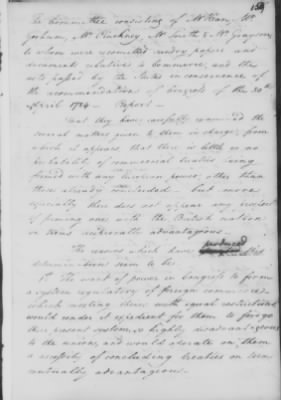 The Committee consisting of Mr Kean, Mr
Gorham, Mr Pinckney, Mr Smith & Mr Grayson
to whom were recommitted sundry papers and
documents relative to commerce, and the
acts passed by the States in consequence of
the recommendations of Congress of the 30th
April 1784 Report
That they have carefully examined the
several matters given to them in charge, from
which it appears that there is little or no
probability of commercial treaties being
formed with any European powers other than
those already concluded — but more
especially there does not appear any prospect
of forming ones with the British nation
on terms reciprocally advantageous —
The reasons which have produced
seem to be
1st The want of power in Congress to form
a system regulatory of foreign commerce
which meeting them with equal restrictions
would render it expedient for them to forego
their present system, so highly disadvantageous
to the union, and would operate on them
a necessity of concluding treaties on terms
mutually advantageous —